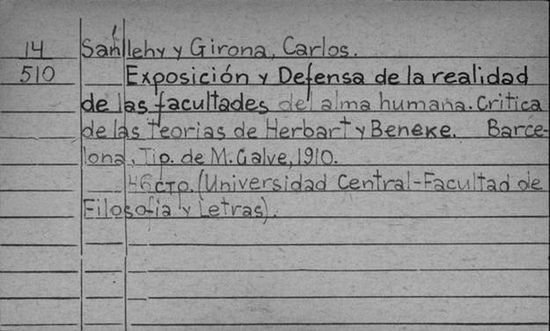 14 Sanllehy y Girona, Carlos.
510 Exposición y Defensa de la realidad
de las facultades del alma humana. Critica
de las Teorias de Herbart y Beneke. Barce-
lona, Tip. de M. Galve, 1910.
(Universidad Central-Facultad de
Filosofia y Letras).